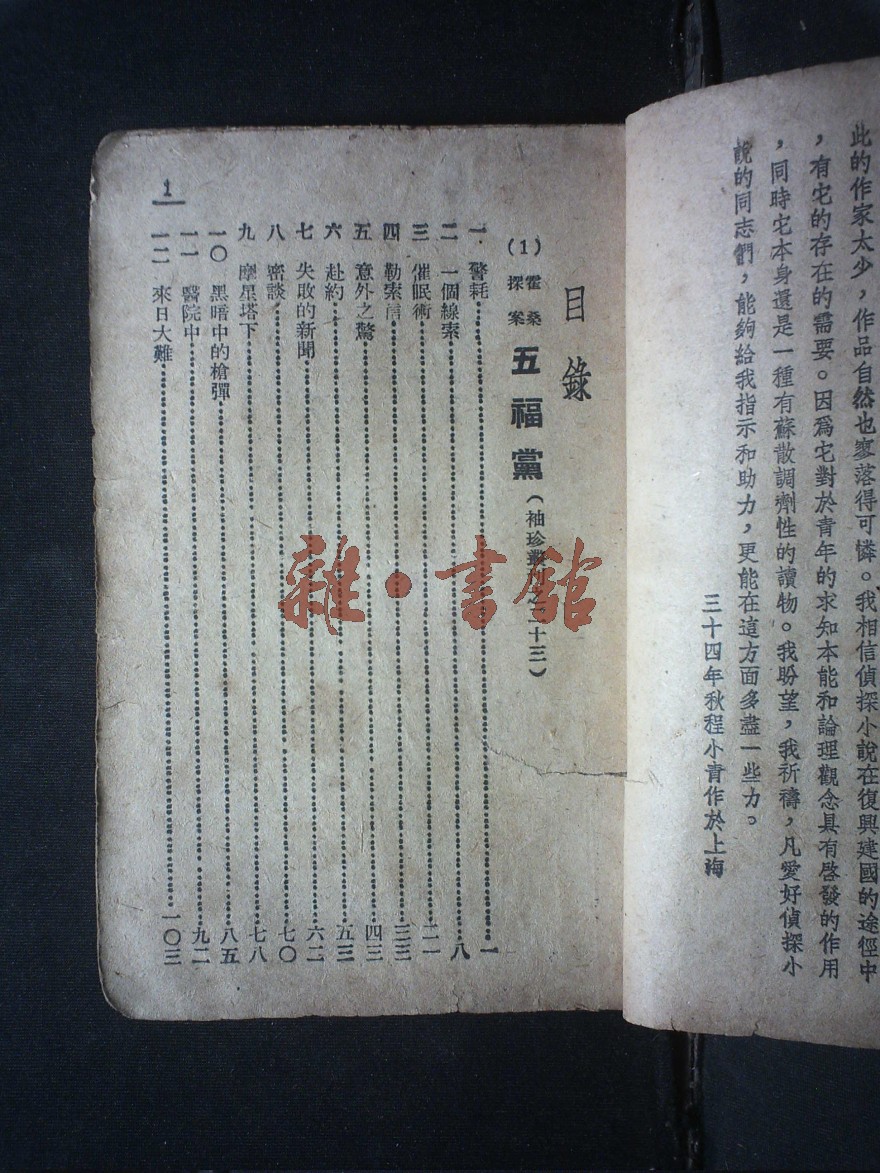 此的作家太少，作品自然也寥落得可憐。我相信偵探小說在復興建國的途徑中
，有它的存在的需要。因爲它對於青年的求知本能和論理觀念具有啓發的作用
，同時它本身還是一種有蘇散調劑性的讀物。我盼望，我祈禱，凡愛好偵探小
說的同志們，能夠給我指示和助力，更能在這方面多盡一些力。
三十四年秋程小青作於上海
目錄
(1) 霍桑探案 五福黨（袖珍叢刊之二十三）
一 警耗 一
二 一個線索 八
三 催眠術 二一
四 勒索信 三三
五 意外之驚 四三
六 赴約 五三
七 失敗的新聞 六二
八 密談 七〇
九 摩星塔下 七八
一〇 黑暗中的槍彈 八五
一一 醫院中 九二
一二 來日大難 一〇三
1
雜·書館